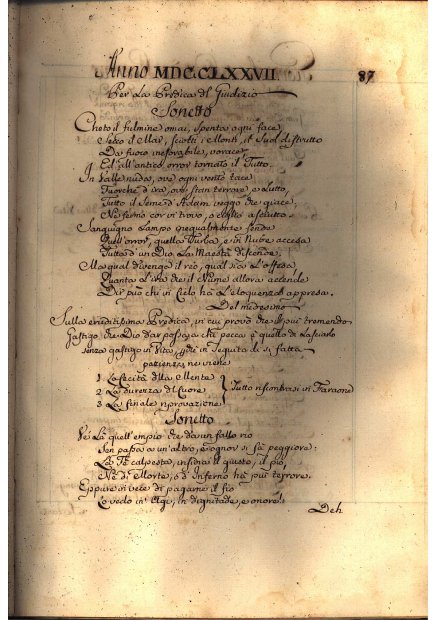 Anno MDCCLXXVII. 87
Per La Predica del Giudizio
Sonetto
Cheto il fulmine omai, spenta ogni face,
Secco il Mar, sciolti i Monti, il Suol distrutto
Da fuoco inesorabile, vorace
Ed all'antico error tornato il Tutto.
In Valle nuda, ove ogni vento tace
Fuorchè d'ira, ove stan terrore, e Lutto,
Tutto il Seme d'Adam veggo che giace,
Nè fermo cor vi trovo, o ciglio asciutto.
Sanguigno Lampo inegualmente fende
Quell'orror, quella Turba, e in Nube accesa
Tutta d'un Dio La Maestà discende.
Ma qual divenga il reo, qual sia L'offesa,
Quanta L'ira che il Nume allora accende
Dir più chi in Cielo ha L'eloquenza appresa.
Del medesimo
Sulla eruditissima Predica, in cui provò che il più tremendo
Gastigo che Dio dar possa a chi pecca è quello di Lasciarlo
senza gastigo in Vita, e che in seguita di sì fatta
pazienza, ne viene
1 La Cecità della Mente
2 La Durezza del Cuore } Tutto riscontrasi in Faraone
3 La finale riprovazione
Sonetto
Ve' Là quell'empio che da un fallo rio
Sen passa a un'altro, e ognor si fà peggiore:
La Fè calpesta, insidia il giusto, il pio,
Nè di Morte, o d'Inferno ha più terrore.
Eppure in vece di pagarne il fio
Lo vedo in Agi, in dignitade, e onore:
Deh